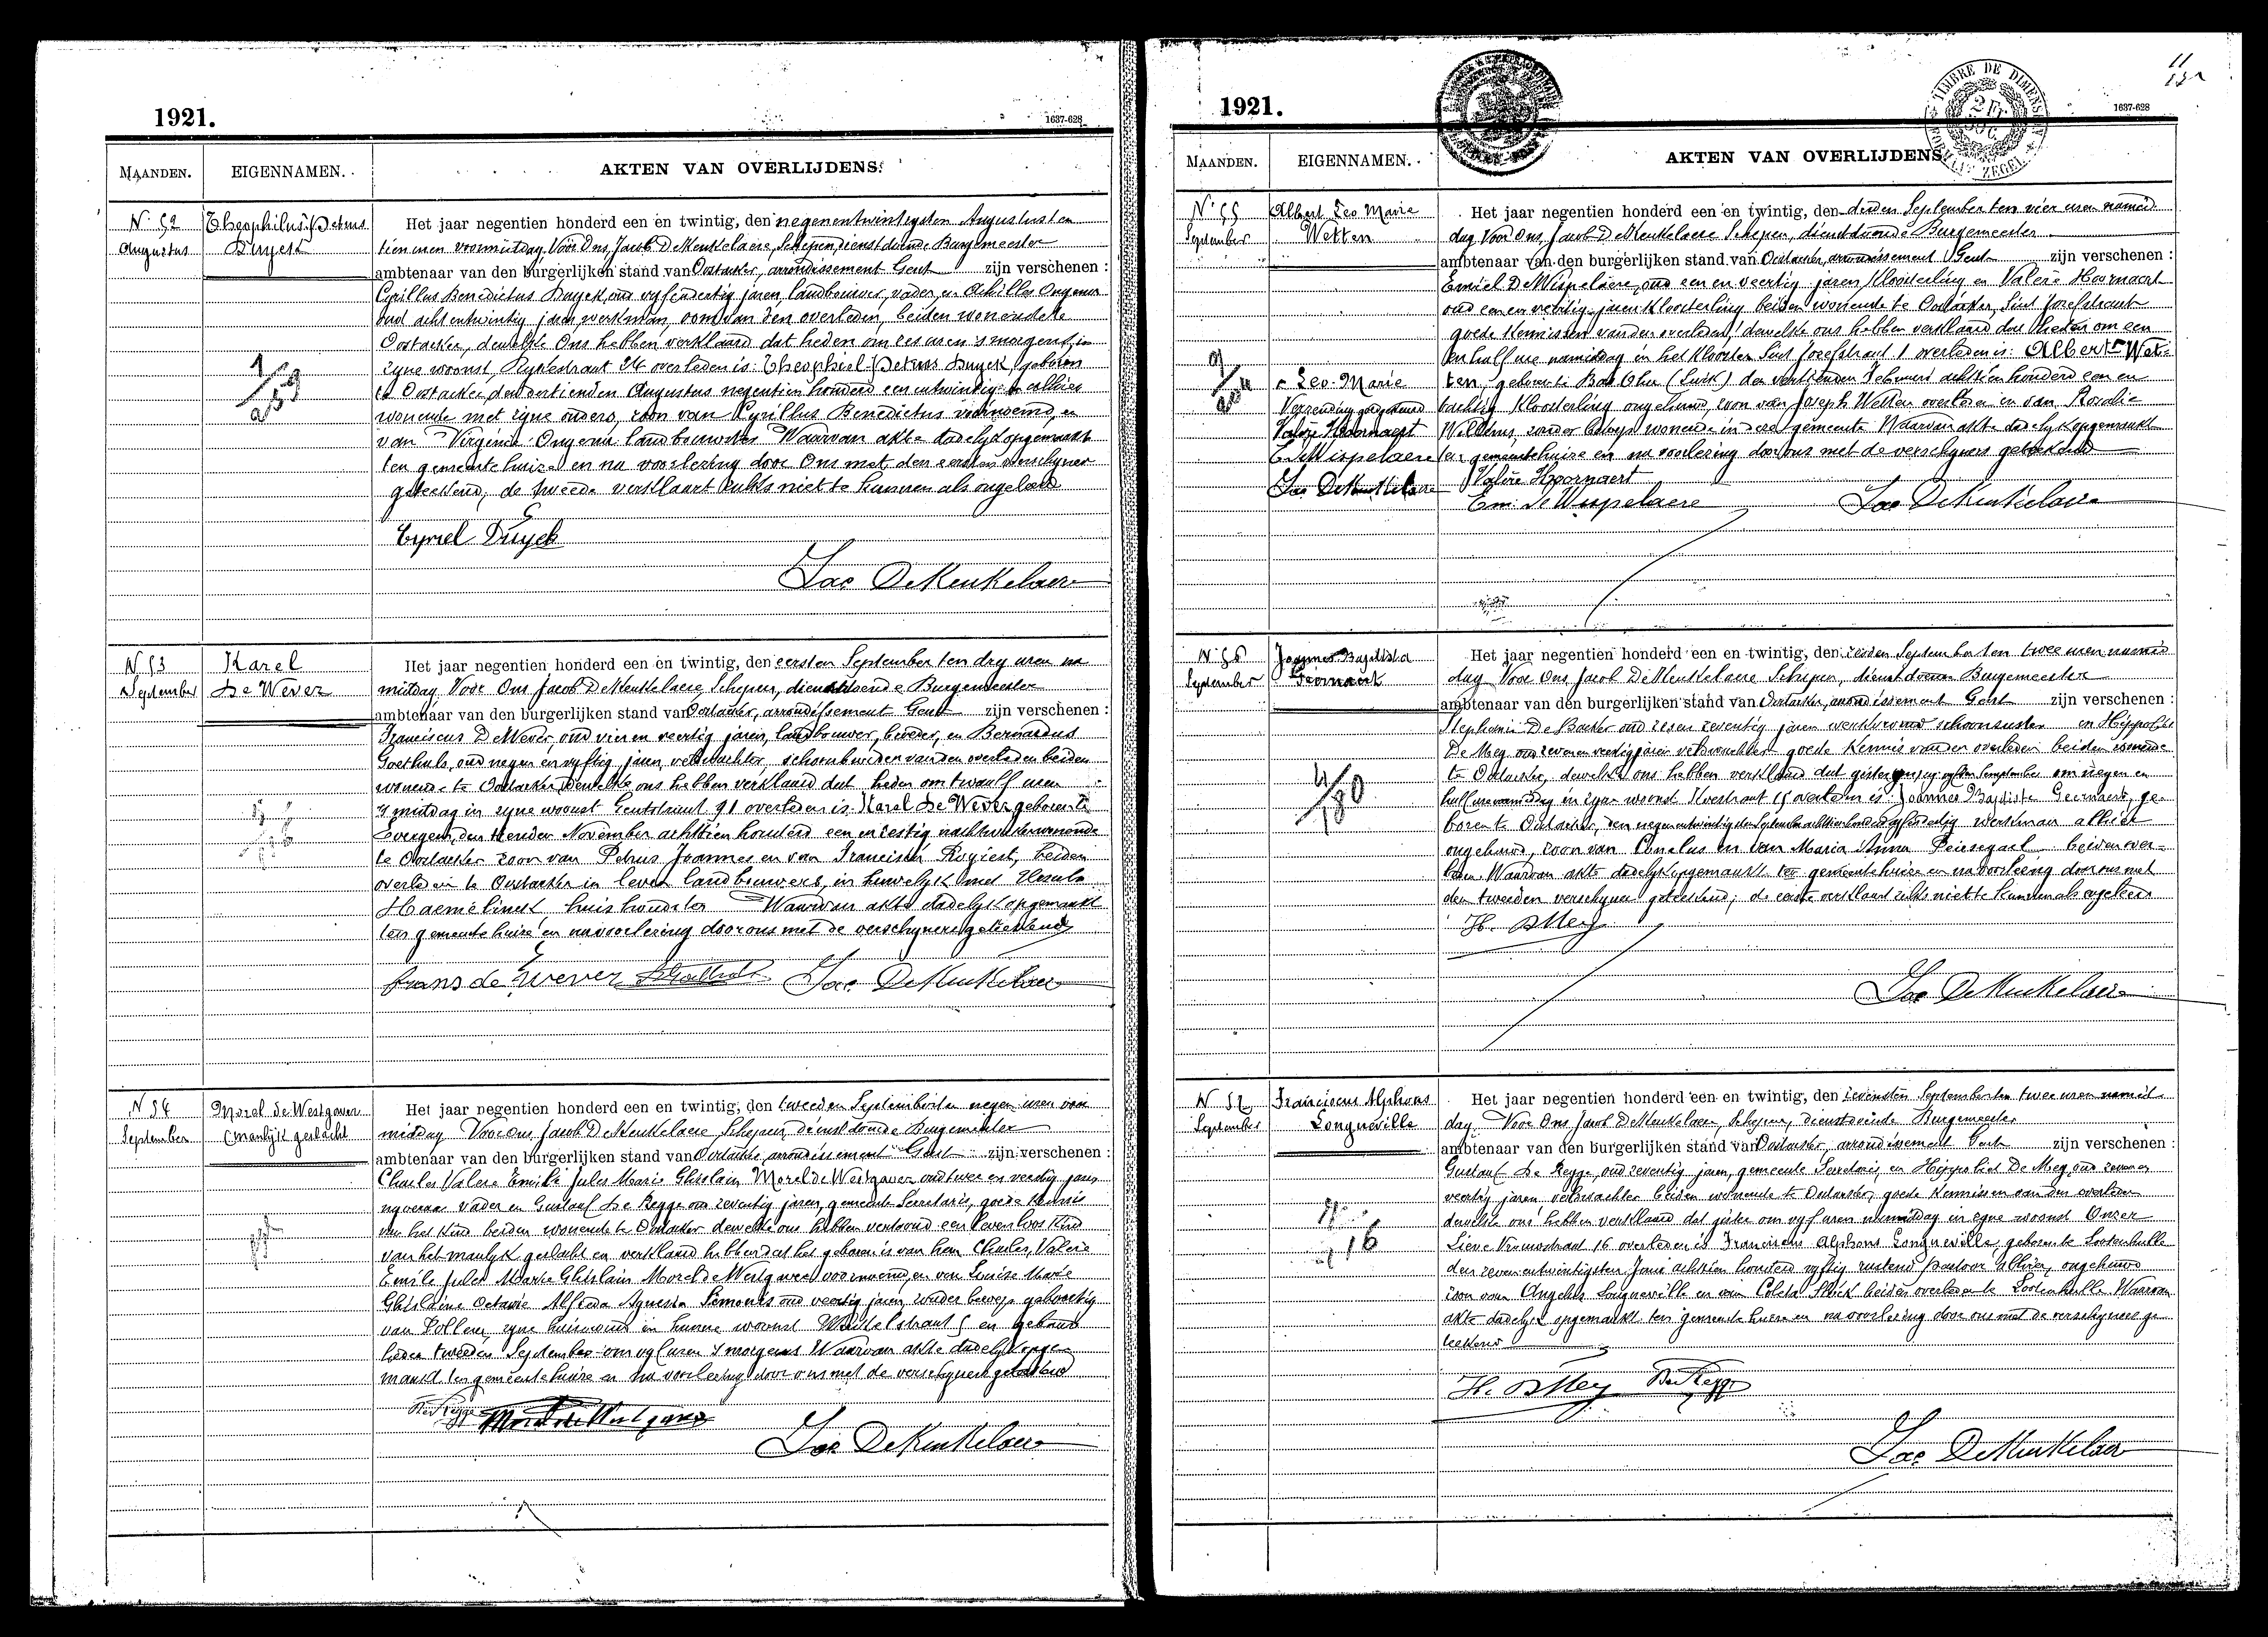 1921.
1637-628
MAANDEN.
EIGENNAMEN.
AKTEN VAN OVERLIJDENS.
N. 52
Augustus
Theophilus Petrus
Duyck
Het jaar negentien honderd een en twintig, den negenentwintigsten Augustus ten
tien uren voormiddag, Voor Ons, Jacob De Meukelaere, Schepen, dienstdoende Burgemeester
ambtenaar van den burgerlijken stand van Oostacker, arrondissement Gent zijn verschenen :
Cyrillus Benedictus Duyck, oud vyfendertig jaren, landbouwer, vader, en Achilles Ongena
oud achtentwintig jaren, werkman, oom van den overleden, beiden wonende te
Oostacker, dewelke Ons hebben verklaard dat heden om zes uren 's morgens, in
zyne woonst, 24 overleden is: Theophiel Petrus Duyck, geboren
te Oostacker, den dertienden Augustus negentien honderd een en twintig, en alhier
wonende met zyne ouders, zoon van Cyrillus Benedictus voornoemd, en
van Virginia Ongena, landbouwster. Waarvan akte dadelyk opgemaakt
ten gemeentehuize en na voorlezing door Ons met den eersten verschyner
geteekend, de tweede verklaart zulks niet te kunnen als ongeleerd
Cyriel Duyck
Jac DeMeukelaere
N 53
September
Karel
De Wever
Het jaar negentien honderd een en twintig, den eersten September ten dry uren na
middag Voor Ons Jacob DeMeukelaere Schepen, dienstdoende Burgemeester
ambtenaar van den burgerlijken stand van Oostacker, arrondissement Gent zijn verschenen :
Franciscus DeWever, oud vier en veertig jaren, landbouwer, broeder, en Bernardus
Goethals, oud negen en vyftig jaren, veldwachter, schoonbroeder van den overleden beiden
wonende te Oostacker, dewelke ons hebben verklaard dat heden om twaalf uren
's middag in zyne woonst Gentstraat 91 overleden is: Karel De Wever geboren te
Evergem, den November achttien honderd een en zestig wonende
te Oostacker zoon van Petrus Joannes en van Francisca Rogiest, beiden
overleden te Oostacker in leven landbouwers, in huwelyk met Ursula
Haemelinck huishoudster Waarvan akte dadelyk opgemaakt
ten gemeentehuize en na voorlezing door ons met de verschyners geteekend
frans de wever Jac. DeMeukelaere
N 54
September
Morel de Westgaver
(manlijk geslacht
Het jaar negentien honderd een en twintig, den tweeden September ten negen uren voor
middag Voor Ons Jacob DeMeukelaere, Schepen, dienstdoende Burgemeester
ambtenaar van den burgerlijken stand van Oostacker, arrondissement Gent zijn verschenen :
Charles Valere Emile Jules Marie Ghislain Morel de Westgaver oud twee en veertig jaren
vader en Gustaaf De Regge oud zeventig jaren, gemeente Secretaris, goede kennis
van het kind beiden wonende te Oostacker dewelke ons hebben vertoond een levenloos kind
van het manlyk geslacht en verklaard hebben dat het geboren is van hem Charles, Valere
Emile Jules Marie Ghislain Morel de Westgaver voornoemd, en van Louise Marie
Ghislaine Octavie Alfreda Agnesia Simonis oud veertig jaren, zonder beroep geboortig
van zyne huisvrouw in hunne woonst 5 en gebaard
heden tweeden September om vyf uren 's morgens Waarvan akte dadelyk opge-
maakt ten gemeentehuize en na voorlezing door ons met de verschyners geteekend
DeRegge Morel de Westgaver
Jac DeMeukelaere
11
1921.
1637-628
TIMBRE DE DIMENSION
2 Fr
ZEGEL
MAANDEN.
EIGENNAMEN.
AKTEN VAN OVERLIJDENS
N. 55
September
Albert Leo Marie
Wetten
Het jaar negentien honderd een en twintig, den derden September ten vier uren namid
dag, Voor Ons, Jacob DeMeukelaere Schepen, dienstdoende Burgemeester
ambtenaar van den burgerlijken stand van Oostacker, arrondissement Gent zijn verschenen :
Emiel DeWispelaere, oud een en veertig jaren Kloosterling en Valere Hoornaert
oud een en veertig jaren kloosterling beiden wonende te Oostacker, Sint Jozefstraat
goede kennissen van den overleden, dewelke ons hebben verklaard dat heden om een
en half ure namiddag in het klooster Sint Jozefstraat 1 overleden is: Albert Wet-
ten, geboren te (Luik) den veertienden Februari achttien honderd een en
tachtig Kloosterling ongehuwd, zoon van Joseph Wetten overleden en van Rosalie
zonder beroep wonende in deze gemeente Waarvan akte dadelyk opgemaakt
ten gemeentehuize en na voorlezing door ons met de verschyners geteekend
Leo-Marie
Verzending goedgekeurd
Valere Hoornaert
E. DeWispelaere
Jac DeMeukelaere
Valère Hoornaert
Em. DeWispelaere
Jac DeMeukelaere
N. 56
September
Joannes Baptista
Geernaert
Het jaar negentien honderd een en twintig, den zesden September ten twee uren namid
dag Voor Ons Jacob DeMeukelaere Schepen, dienstdoende Burgemeester
ambtenaar van den burgerlijken stand van Oostacker, arrondissement Gent zijn verschenen :
Stephanie De Backer oud zes en zeventig jaren werkvrouw schoonzuster en Hippoliet
De Mey oud zeven en veertig jaren veldwachter goede kennis van den overleden beiden wonende
te Oostacker, dewelke ons hebben verklaard dat gisteren, zyn vyfden September om negen en
half ure namiddag in zyne woonst 15 overleden is: Joannes Baptiste Geernaert, ge-
boren te Oostacker, den negenentwintigsten September achttien honderd werkman alhier
ongehuwd, zoon van en van Maria Anna beiden over-
leden. Waarvan akte dadelyk opgemaakt ten gemeentehuize en na voorlezing door ons met
den tweeden verschyner geteekend; de eerste verklaard zulks niet te kunnen als ongeleerd
H. DMey
Jac DeMeukelaere
N 57
September
Franciscus Alphons
Longueville
Het jaar negentien honderd een en twintig, den zevensten September ten twee uren namid-
dag. Voor Ons Jacob DeMeukelaere, Schepen, dienstdoende Burgemeester
ambtenaar van den burgerlijken stand van Oostacker, arrondissement Gent zijn verschenen :
Gustaaf De Regge, oud zeventig jaren, gemeente Secretaris, en Hippoliet De Mey, oud zeven en
veertig jaren veldwachter beiden wonende te Oostacker, goede kennissen van den overleden
dewelke ons hebben verklaard dat gister om vyf uren namiddag in zyne woonst Onzer
Lieve Vrouwstraat 16 overleden is Franciscus Alphons Longueville, geboren te Lootenhulle
den zevenentwintigsten Juni achttien honderd vyftig rustend pastoor alhier, ongehuwd
zoon van Angelus Longueville en van Coleta beiden overleden te Lootenhulle Waarvan
akte dadelyk opgemaakt ten gemeentehuize en na voorlezing door ons met de verschyners ge
teekend
H. DMey DeRegge
Jac DeMeukelaere